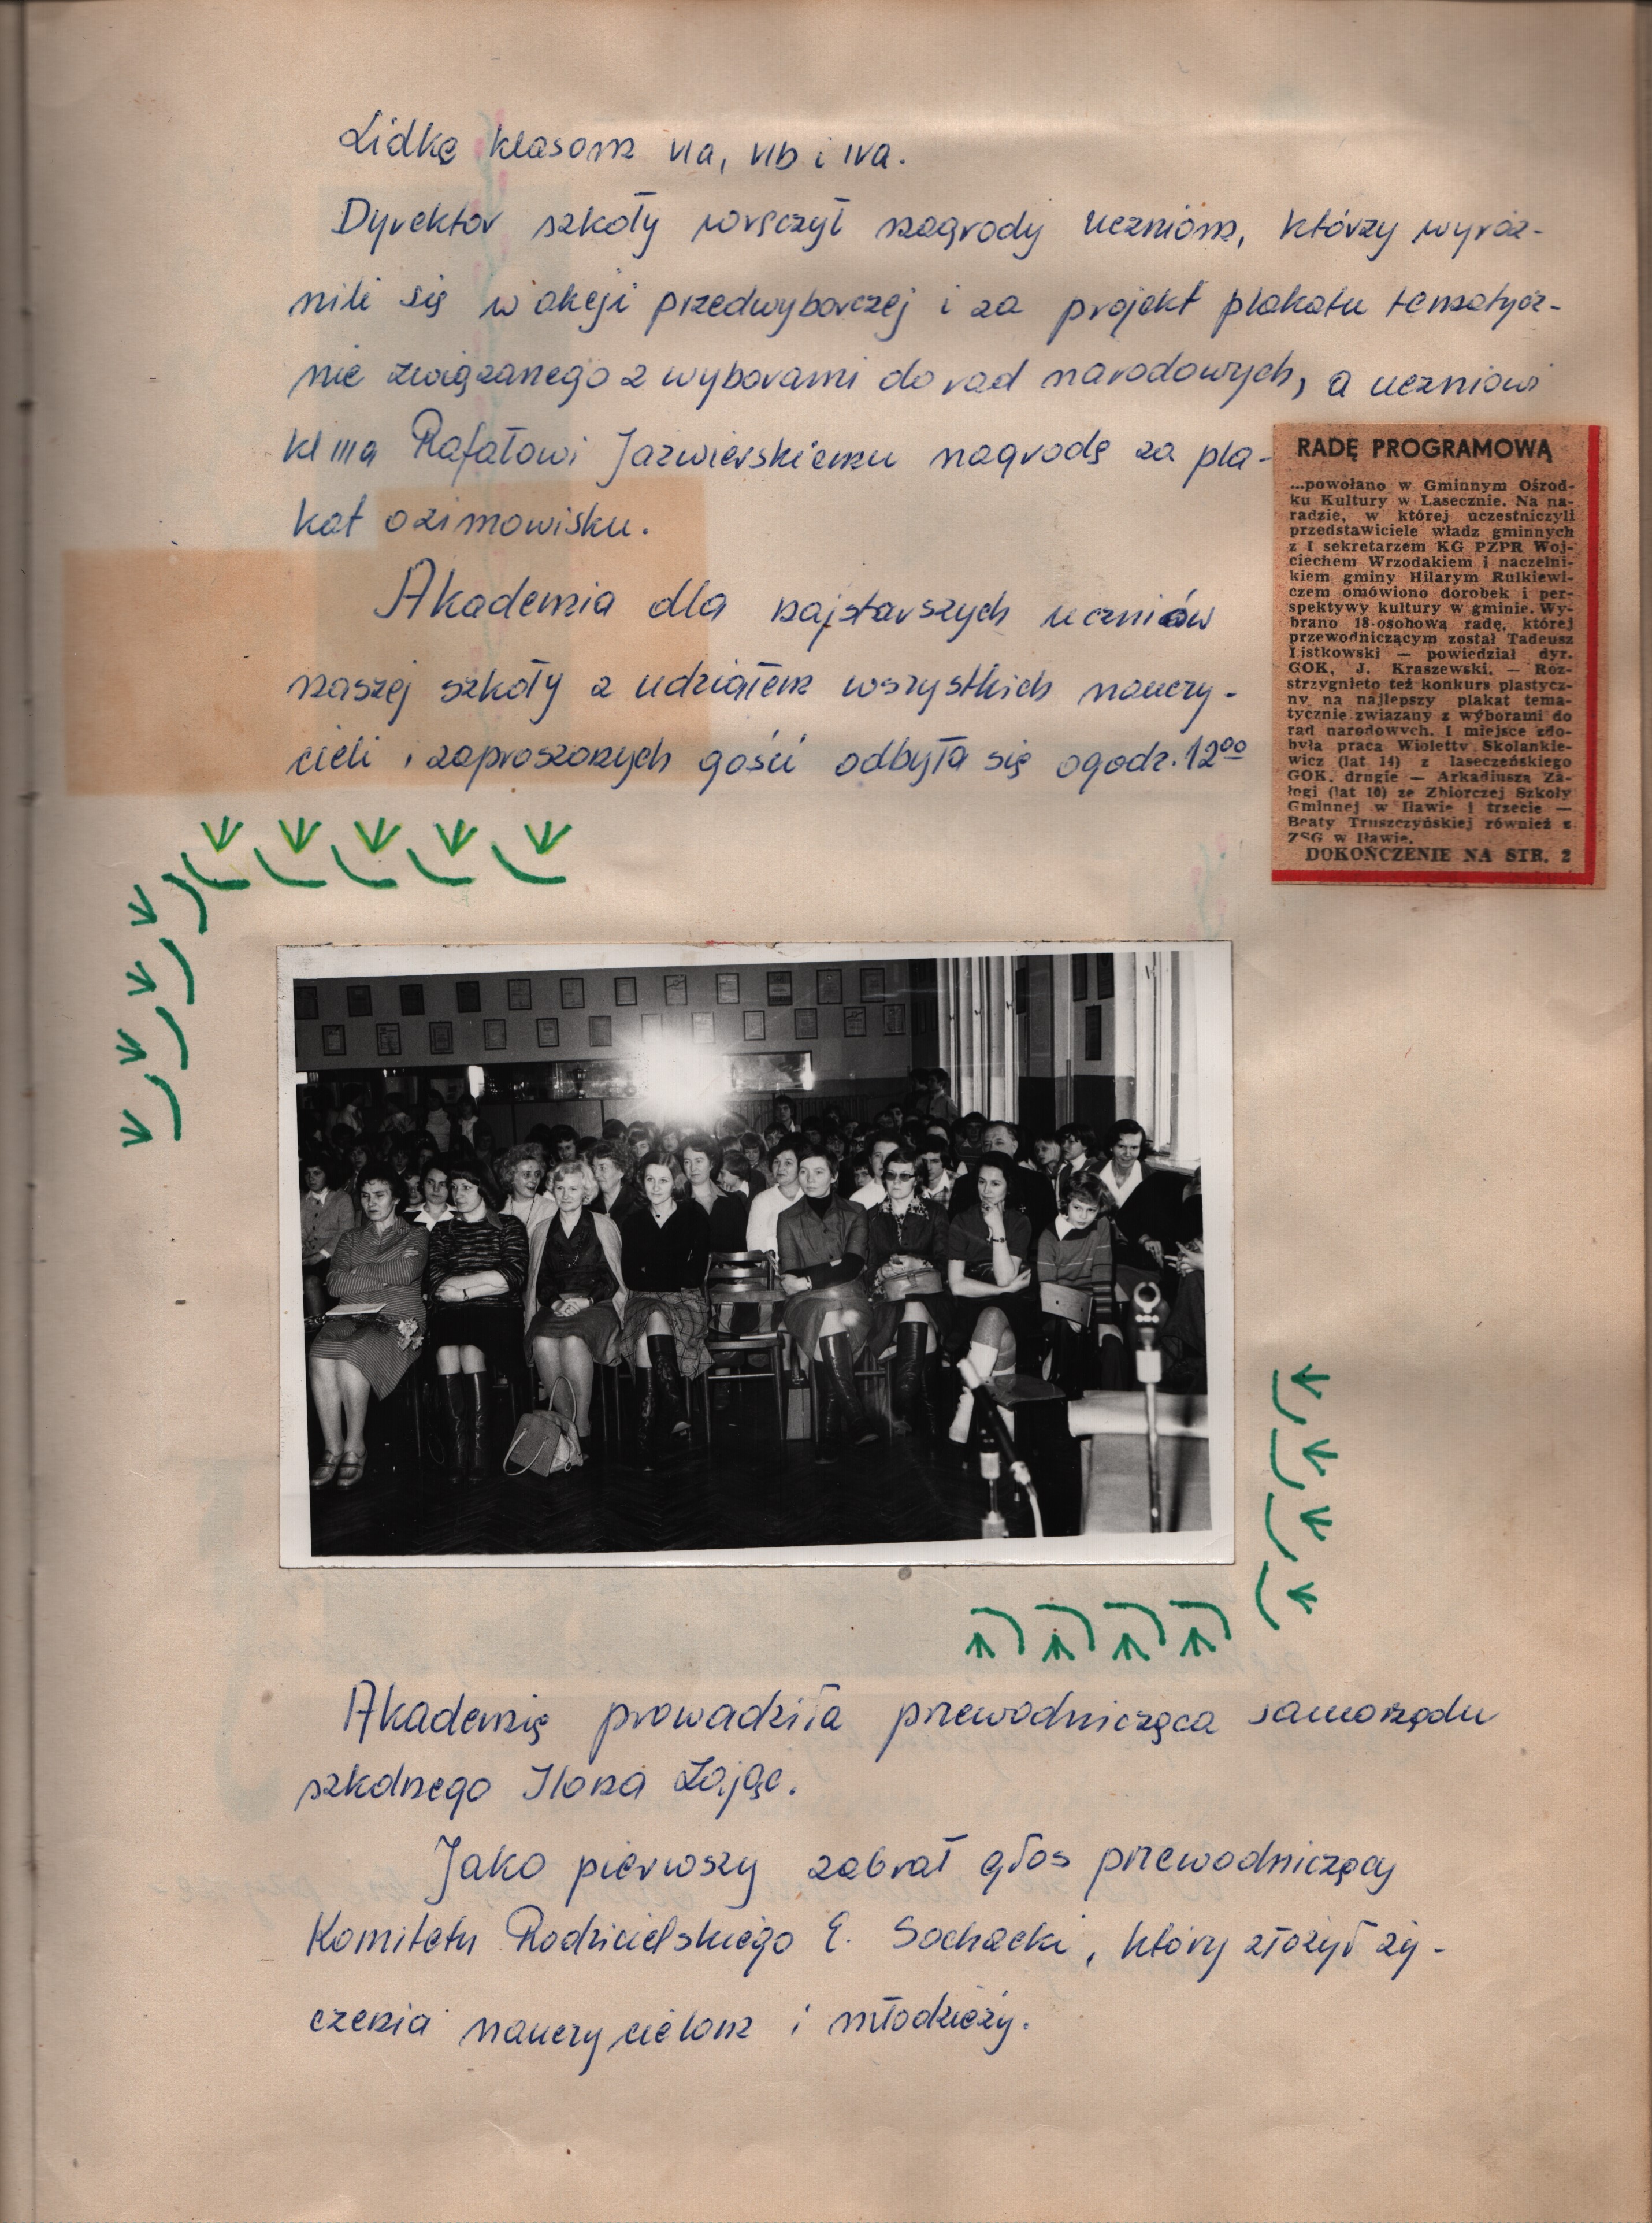 Lidkę klasom VIa, VIb i IVa.
Dyrektor szkoły wręczył nagrody uczniom, którzy wyróż-
nili się w akcji przedwyborczej i za projekt plakatu tematycz-
nie związanego z wyborami do rad narodowych, a uczniowi
kl IIIa Rafałowi Jaźwierskiemu nagrodę za pla-
kat o zimowisku.
Akademia dla najstarszych uczniów
naszej szkoły z udziałem wszystkich nauczy-
cieli i zaproszonych gości odbyła się o godz. 12⁰⁰
RADĘ PROGRAMOWĄ
...powołano w Gminnym Ośrod-
ku Kultury w Lasecznie. Na na-
radzie, w której uczestniczyli
przedstawiciele władz gminnych
z I sekretarzem KG PZPR Woj-
ciechem Wrzodakiem i naczelni-
kiem gminy Hilarym Rulkiewi-
czem omówiono dorobek i per-
spektywy kultury w gminie. Wy-
brano 18-osobową radę, której
przewodniczącym został Tadeusz
Listkowski — powiedział dyr.
GOK, J. Kraszewski. — Roz-
strzygnięto też konkurs plastycz-
ny na najlepszy plakat tema-
tycznie związany z wyborami do
rad narodowych. I miejsce zdo-
była praca Wioletty Skolankie-
wicz (lat 14) z laseczeńskiego
GOK, drugie — Arkadiusza Za-
łogi (lat 10) ze Zbiorczej Szkoły
Gminnej w Iławie i trzecie —
Beaty Truszczyńskiej również z
ZSG w Iławie.
DOKOŃCZENIE NA STR. 2
Akademię prowadziła przewodnicząca samorządu
szkolnego Ilona Zając.
Jako pierwszy zabrał głos przewodniczący
Komitetu Rodzicielskiego E. Sochacki, który złożył ży-
czenia nauczycielom i młodzieży.